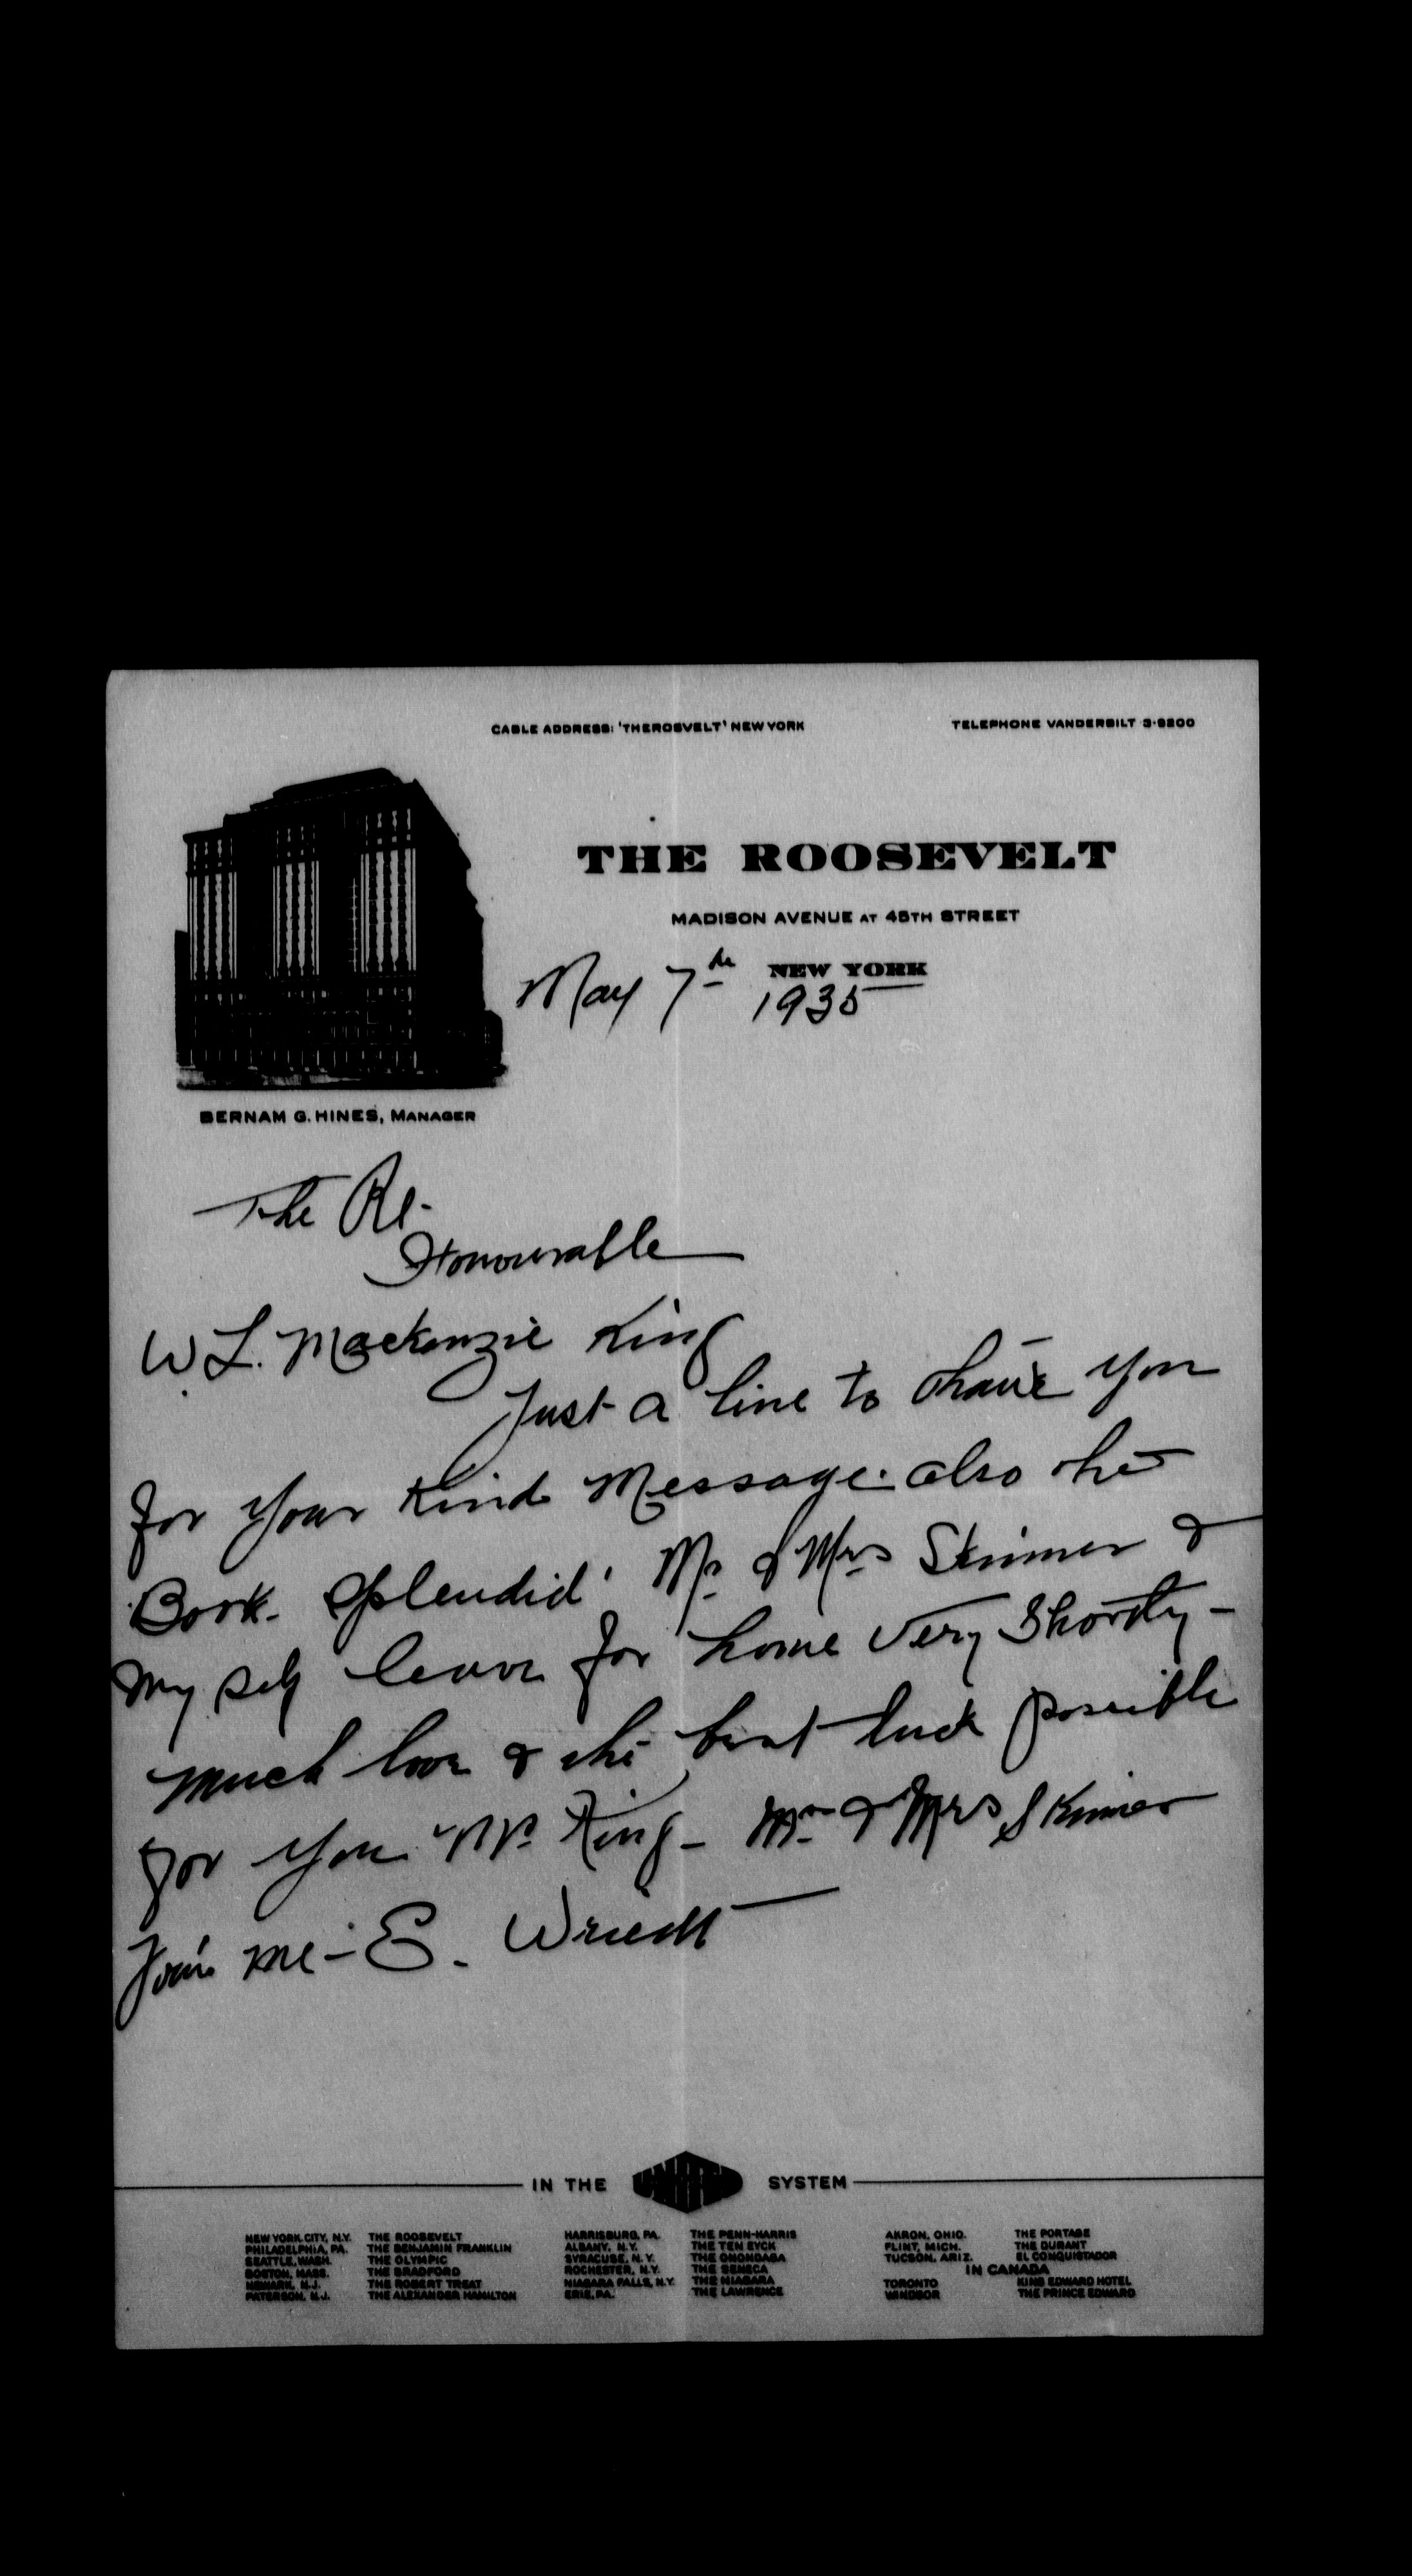 CABLE ADDRESS: 'THEROSVELT' NEW YORK
TELEPHONE VANDERBILT 3-9200
THE ROOSEVELT
MADISON AVENUE AT 45TH STREET
NEW YORK
May 7th 1935
BERNAM G. HINES, MANAGER
The Rt.
Honourable
W L. Mackenzie King
Just a line to thank you
for your kind message. also the
Book. Splendid. Mr & Mrs Skinner &
my self leave for home very shortly -
much love & the best luck possible
for you Mr King - Mr & Mrs Skinner
Join me - E. Wriedt
IN THE UNITED SYSTEM
NEW YORK CITY, N.Y. THE ROOSEVELT
PHILADELPHIA, PA. THE BENJAMIN FRANKLIN
SEATTLE, WASH. THE OLYMPIC
BOSTON, MASS. THE BRADFORD
NEWARK, N.J. THE ROBERT TREAT
PATERSON, N.J. THE ALEXANDER HAMILTON
HARRISBURG, PA. THE PENN-HARRIS
ALBANY, N.Y. THE TEN EYCK
SYRACUSE, N.Y. THE ONONDAGA
ROCHESTER, N.Y. THE SENECA
NIAGARA FALLS, N.Y. THE NIAGARA
ERIE, PA. THE LAWRENCE
AKRON, OHIO. THE PORTAGE
FLINT, MICH. THE DURANT
TUCSON, ARIZ. EL CONQUISTADOR
IN CANADA
TORONTO KING EDWARD HOTEL
WINDSOR THE PRINCE EDWARD